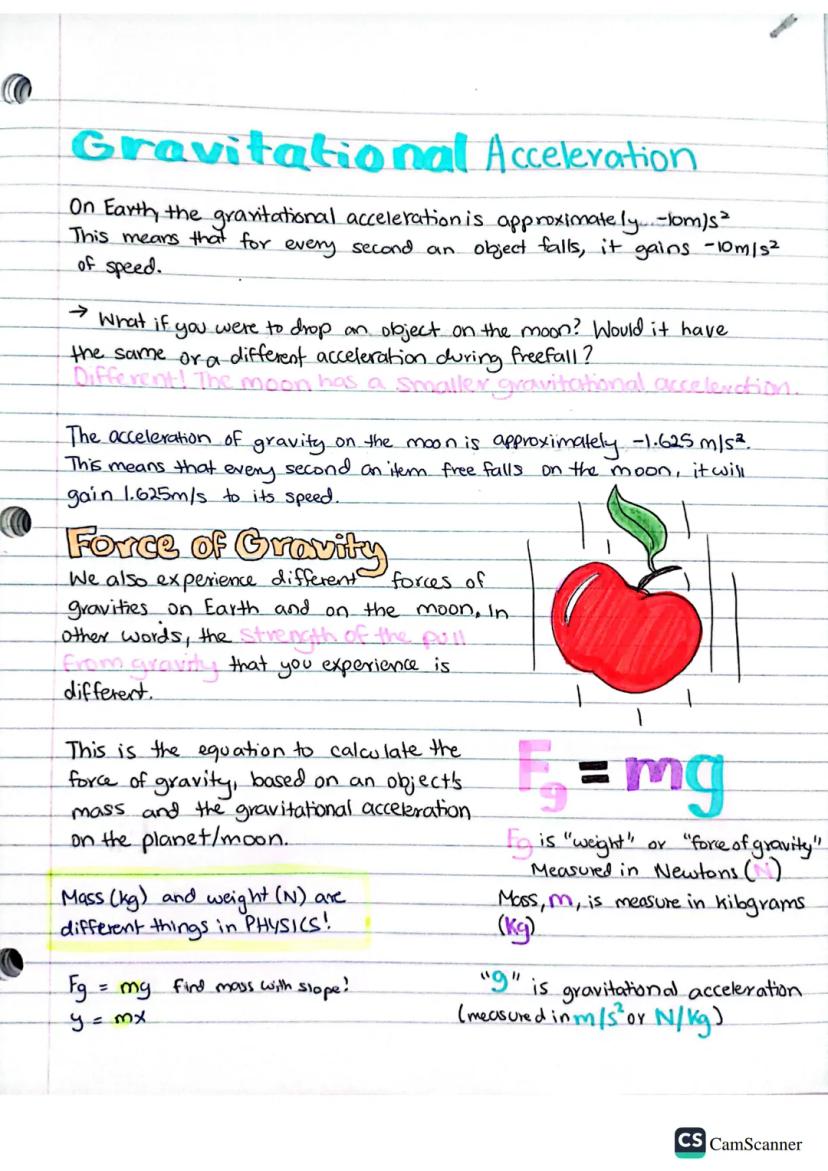 Gravitational Acceleration
On Earth, the gravitational acceleration is approximately -10m/s²
This means that for every second an object falls, it gains -10m/s²
of speed.
→ What if you were to drop an object on the moon? Would it have
the same or a different acceleration during freefall?
Different! The moon has a smaller gravitational acceleration.
The acceleration of gravity on the moon is approximately -1.625 m/s².
This means that every second an item free falls on the moon, it will
gain 1.625m/s to its speed.
Force of Gravity
We also experience different forces of
gravities on Earth and on the moon, In
other words, the strength of the pull
from gravity that you experience is
different.
This is the equation to calculate the
force of gravity, based on an object's
mass and the gravitational acceleration
on the planet/moon.
Mass (kg) and weight (N) are
different things in PHYSICS!
Fg = mg find mass with slope!
y = mx
Fg = mg
Fg is "weight" or "force of gravity"
Measured in Newtons (N)
Mass, m, is measure in kilograms
(Kg)
"g" is gravitational acceleration
(measured in m/s² or N/Kg)
CS CamScanner